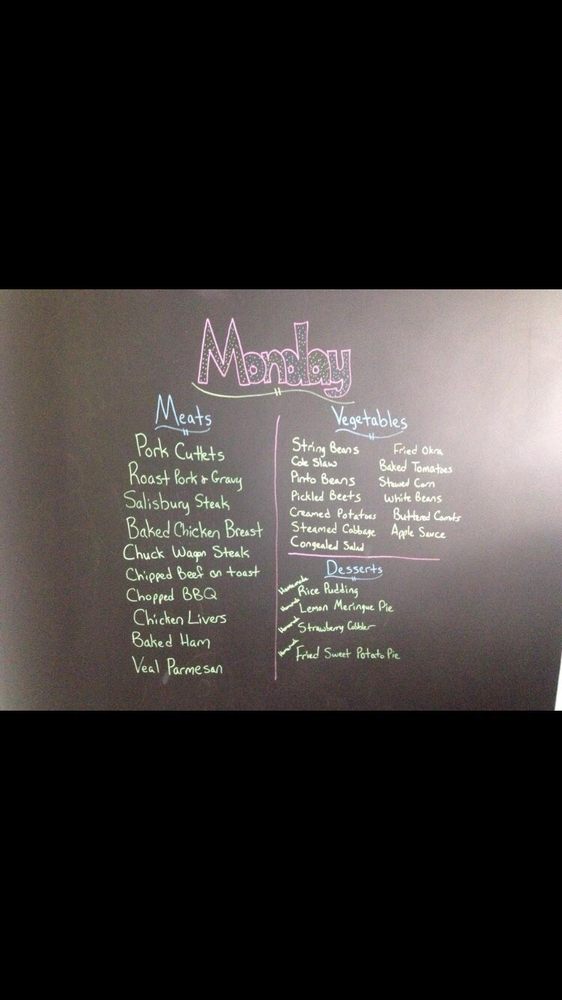 Monday
Meats
Pork Cutlets
Roast Pork & Gravy
Salisbury Steak
Baked Chicken Breast
Chuck Wagon Steak
Chipped Beef on toast
Chopped BBQ
Chicken Livers
Baked Ham
Veal Parmesan
Vegetables
String Beans
Cole Slaw
Pinto Beans
Pickled Beets
Creamed Potatoes
Steamed Cabbage
Congealed Salad
Fried Okra
Baked Tomatoes
Stewed Corn
White Beans
Buttered Carrots
Apple Sauce
Desserts
Homemade Rice Pudding
Homemade Lemon Meringue Pie
Homemade Strawberry Cobbler
Homemade Fried Sweet Potato Pie